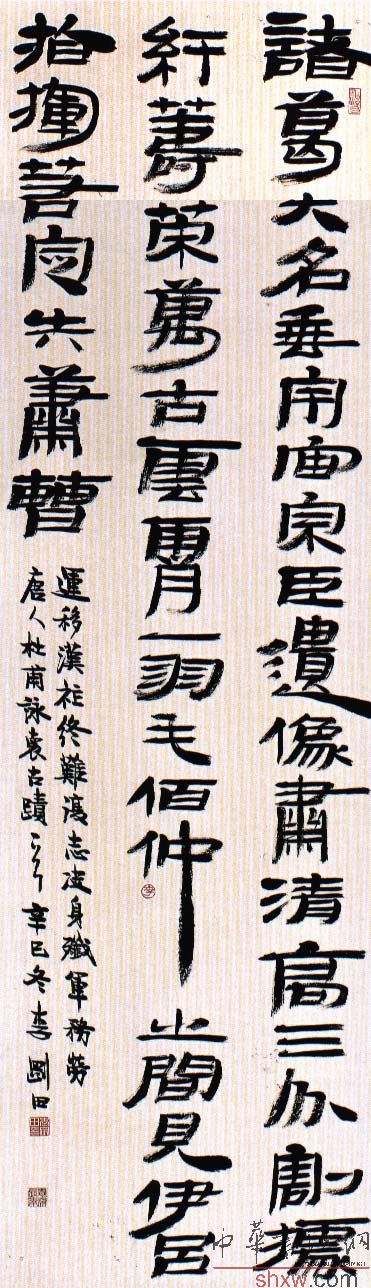 諸葛大名垂宇宙宗臣遺像肅清高三分割據
紆籌策萬古雲霄一羽毛伯仲之間見伊呂
指揮若定失蕭曹
運移漢祚終難復志決身殲軍務勞
唐人杜甫詠褱古蹟 辛巳冬李剛田
shxw.com